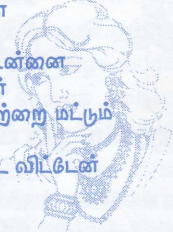 டன்னை
ற்றை மட்டும்
ட விட்டேன்